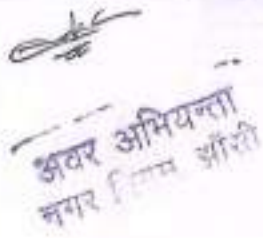 अवर अभियन्ता
नगर निगम झाँसी